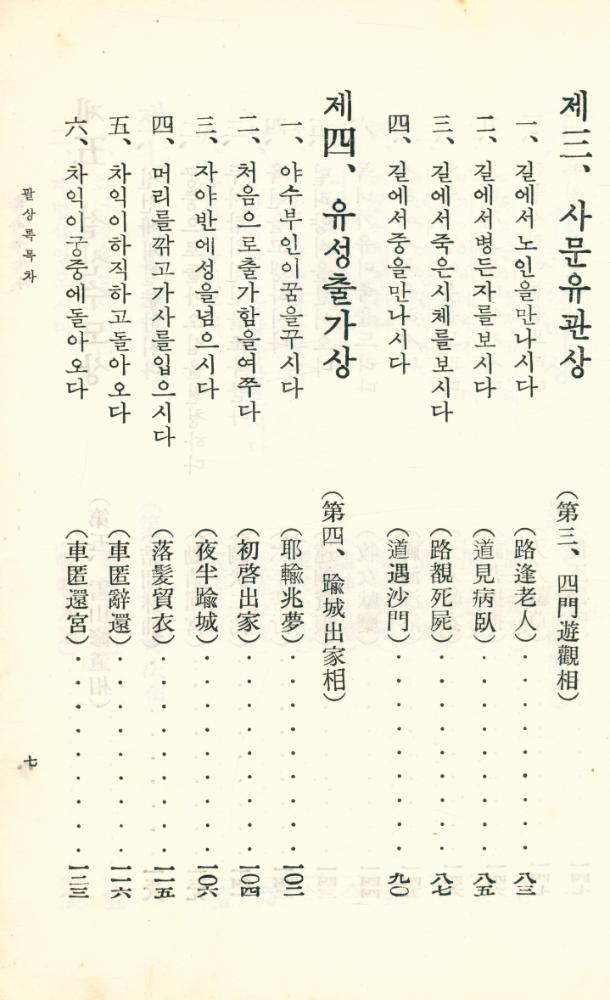 제三、사문유관상 (第三、四門遊觀相)
一、길에서노인을만나시다 (路逢老人)············八三
二、길에서병든자를보시다 (道見病臥)············八五
三、길에서죽은시체를보시다 (路覩死屍)············八七
四、길에서중을만나시다 (道遇沙門)············九〇
제四、유성출가상 (第四、踰城出家相)
一、야수부인이꿈을꾸시다 (耶輸兆夢)············一〇二
二、처음으로출가함을여쭈다 (初啓出家)············一〇四
三、자야반에성을넘으시다 (夜半踰城)············一〇六
四、머리를깎고가사를입으시다 (落髮貿衣)············一一五
五、차익이하직하고돌아오다 (車匿辭還)············一一六
六、차익이궁중에돌아오다 (車匿還宮)············一二三
팔상록목차
七